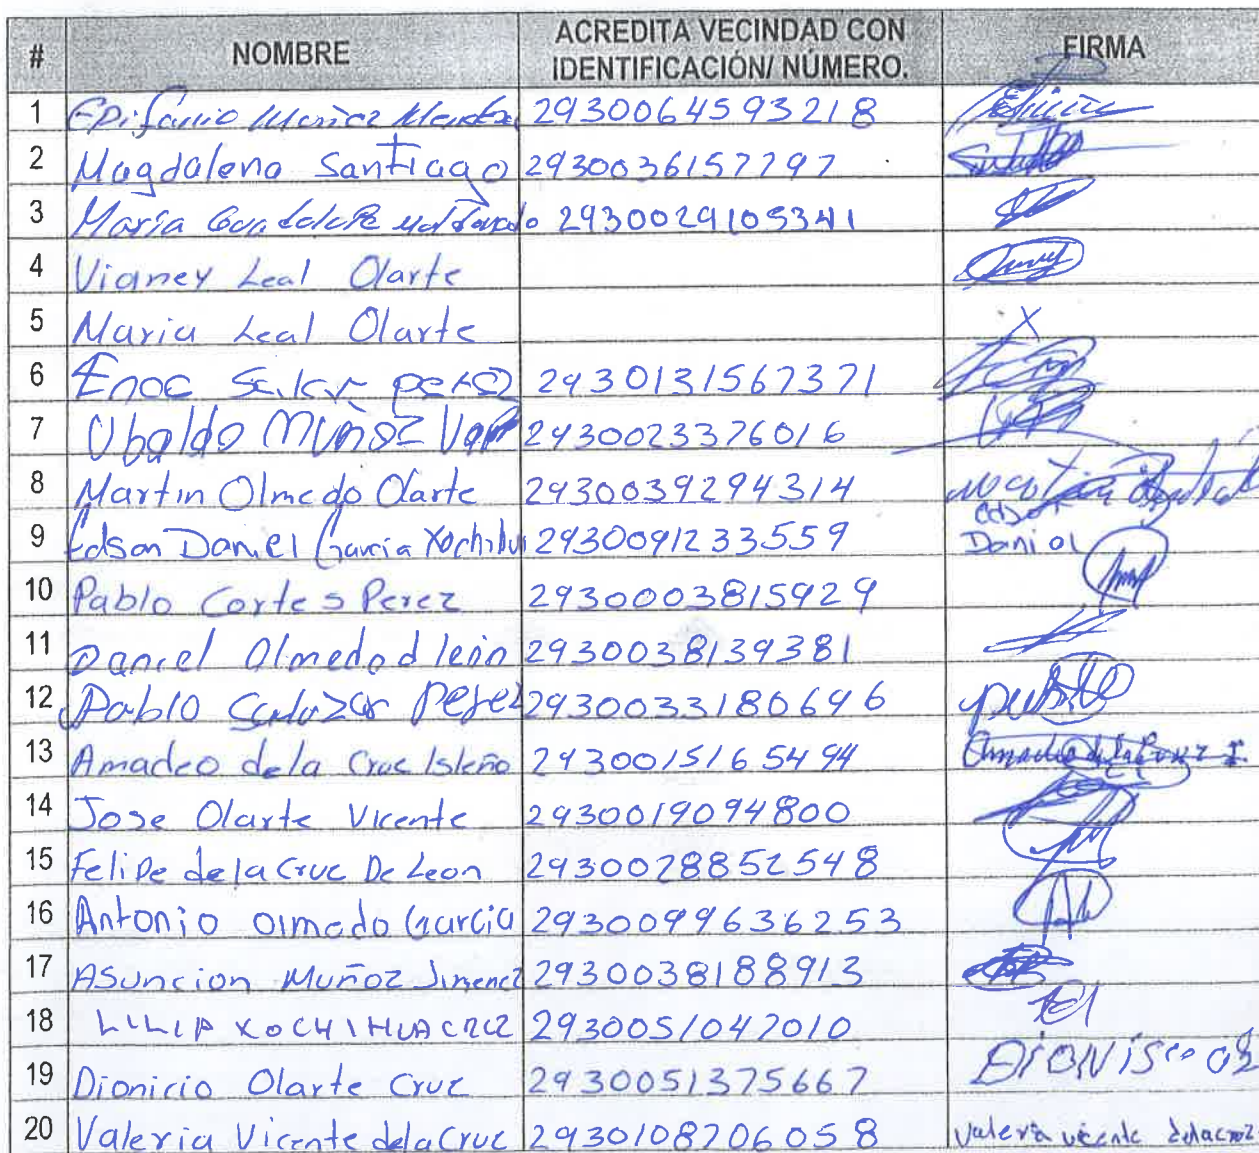 # NOMBRE ACREDITA VECINDAD CON IDENTIFICACIÓN/ NÚMERO. FIRMA
1 Epifanio Muñoz 2930064593218
2 Magdalena Santiago 2930036157797
3 Maria Guadalupe 2930029105341
4 Vianey Leal Olarte
5 Maria Leal Olarte X
6 Enoc perez 2930131567371
7 Ubaldo Muñoz 2930023376016
8 Martin Olmedo Olarte 2930039294314
9 Edson Daniel Garcia 2930091233559 edson Daniel
10 Pablo Cortes Perez 2930003815929
11 Daniel Olmedo d león 2930038139381
12 Pablo Salazar Perez 2930033180696
13 Amadeo de la Cruz Isleño 2930015165494 Amadeo de la Cruz I.
14 Jose Olarte Vicente 2930019094800
15 Felipe de la Cruz De Leon 2930028852548
16 Antonio Olmedo Garcia 2930099636253
17 Asuncion Muñoz Jimenez 2930038188913
18 LILIA XOCHIHUA CRUZ 2930051047010
19 Dionicio Olarte Cruz 2930051375667
20 Valeria Vicente de la Cruz 2930108706058 Valeria vicente delacruz